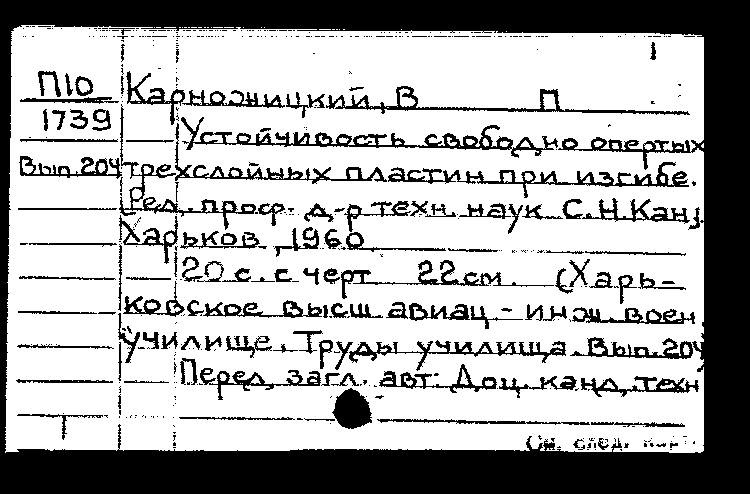 1
П10 Карножицкий, В П
1739
Устойчивость свободно опертых
Вып.204 трехслойных пластин при изгибе.
Ред. проф. д-р техн. наук С.Н.Кан,
Харьков, 1960
20 с. с черт 22 см. (Харь-
ковское высш авиац - инж. воен.
училище. Труды училища. Вып. 204
Перед загл. авт: Доц. канд. техн
См. след. карт.